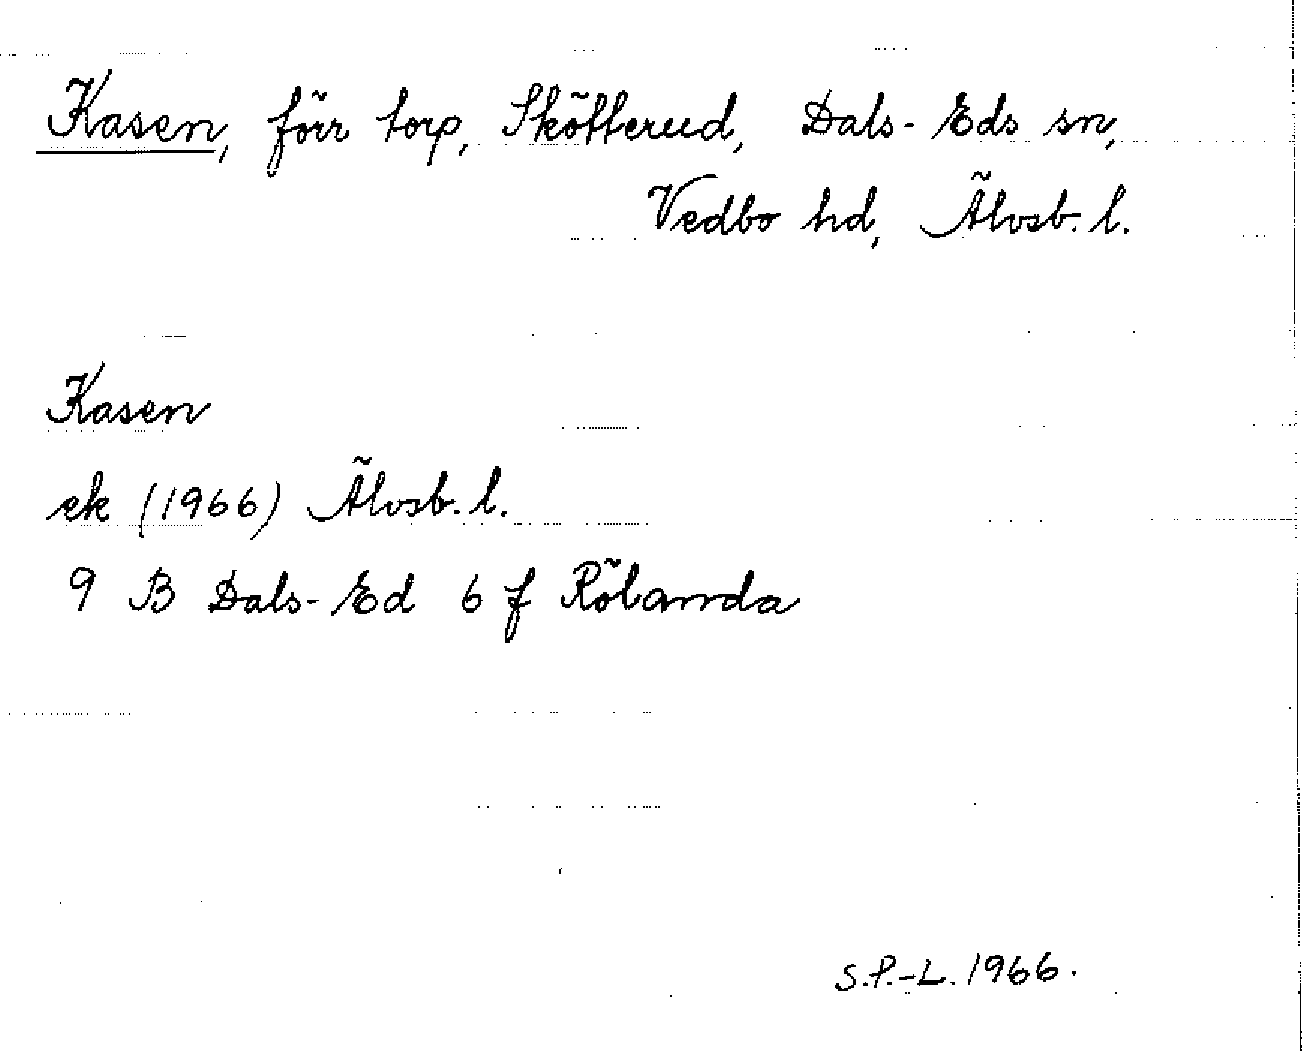 Kasen, förr torp, Skötterud, Dals-Eds sn,
Vedbo hd, Älvsb. l.
Kasen
ek (1966) Älvsb. l.
9 B Dals-Ed 6 f Rölanda
S.P.-L. 1966.